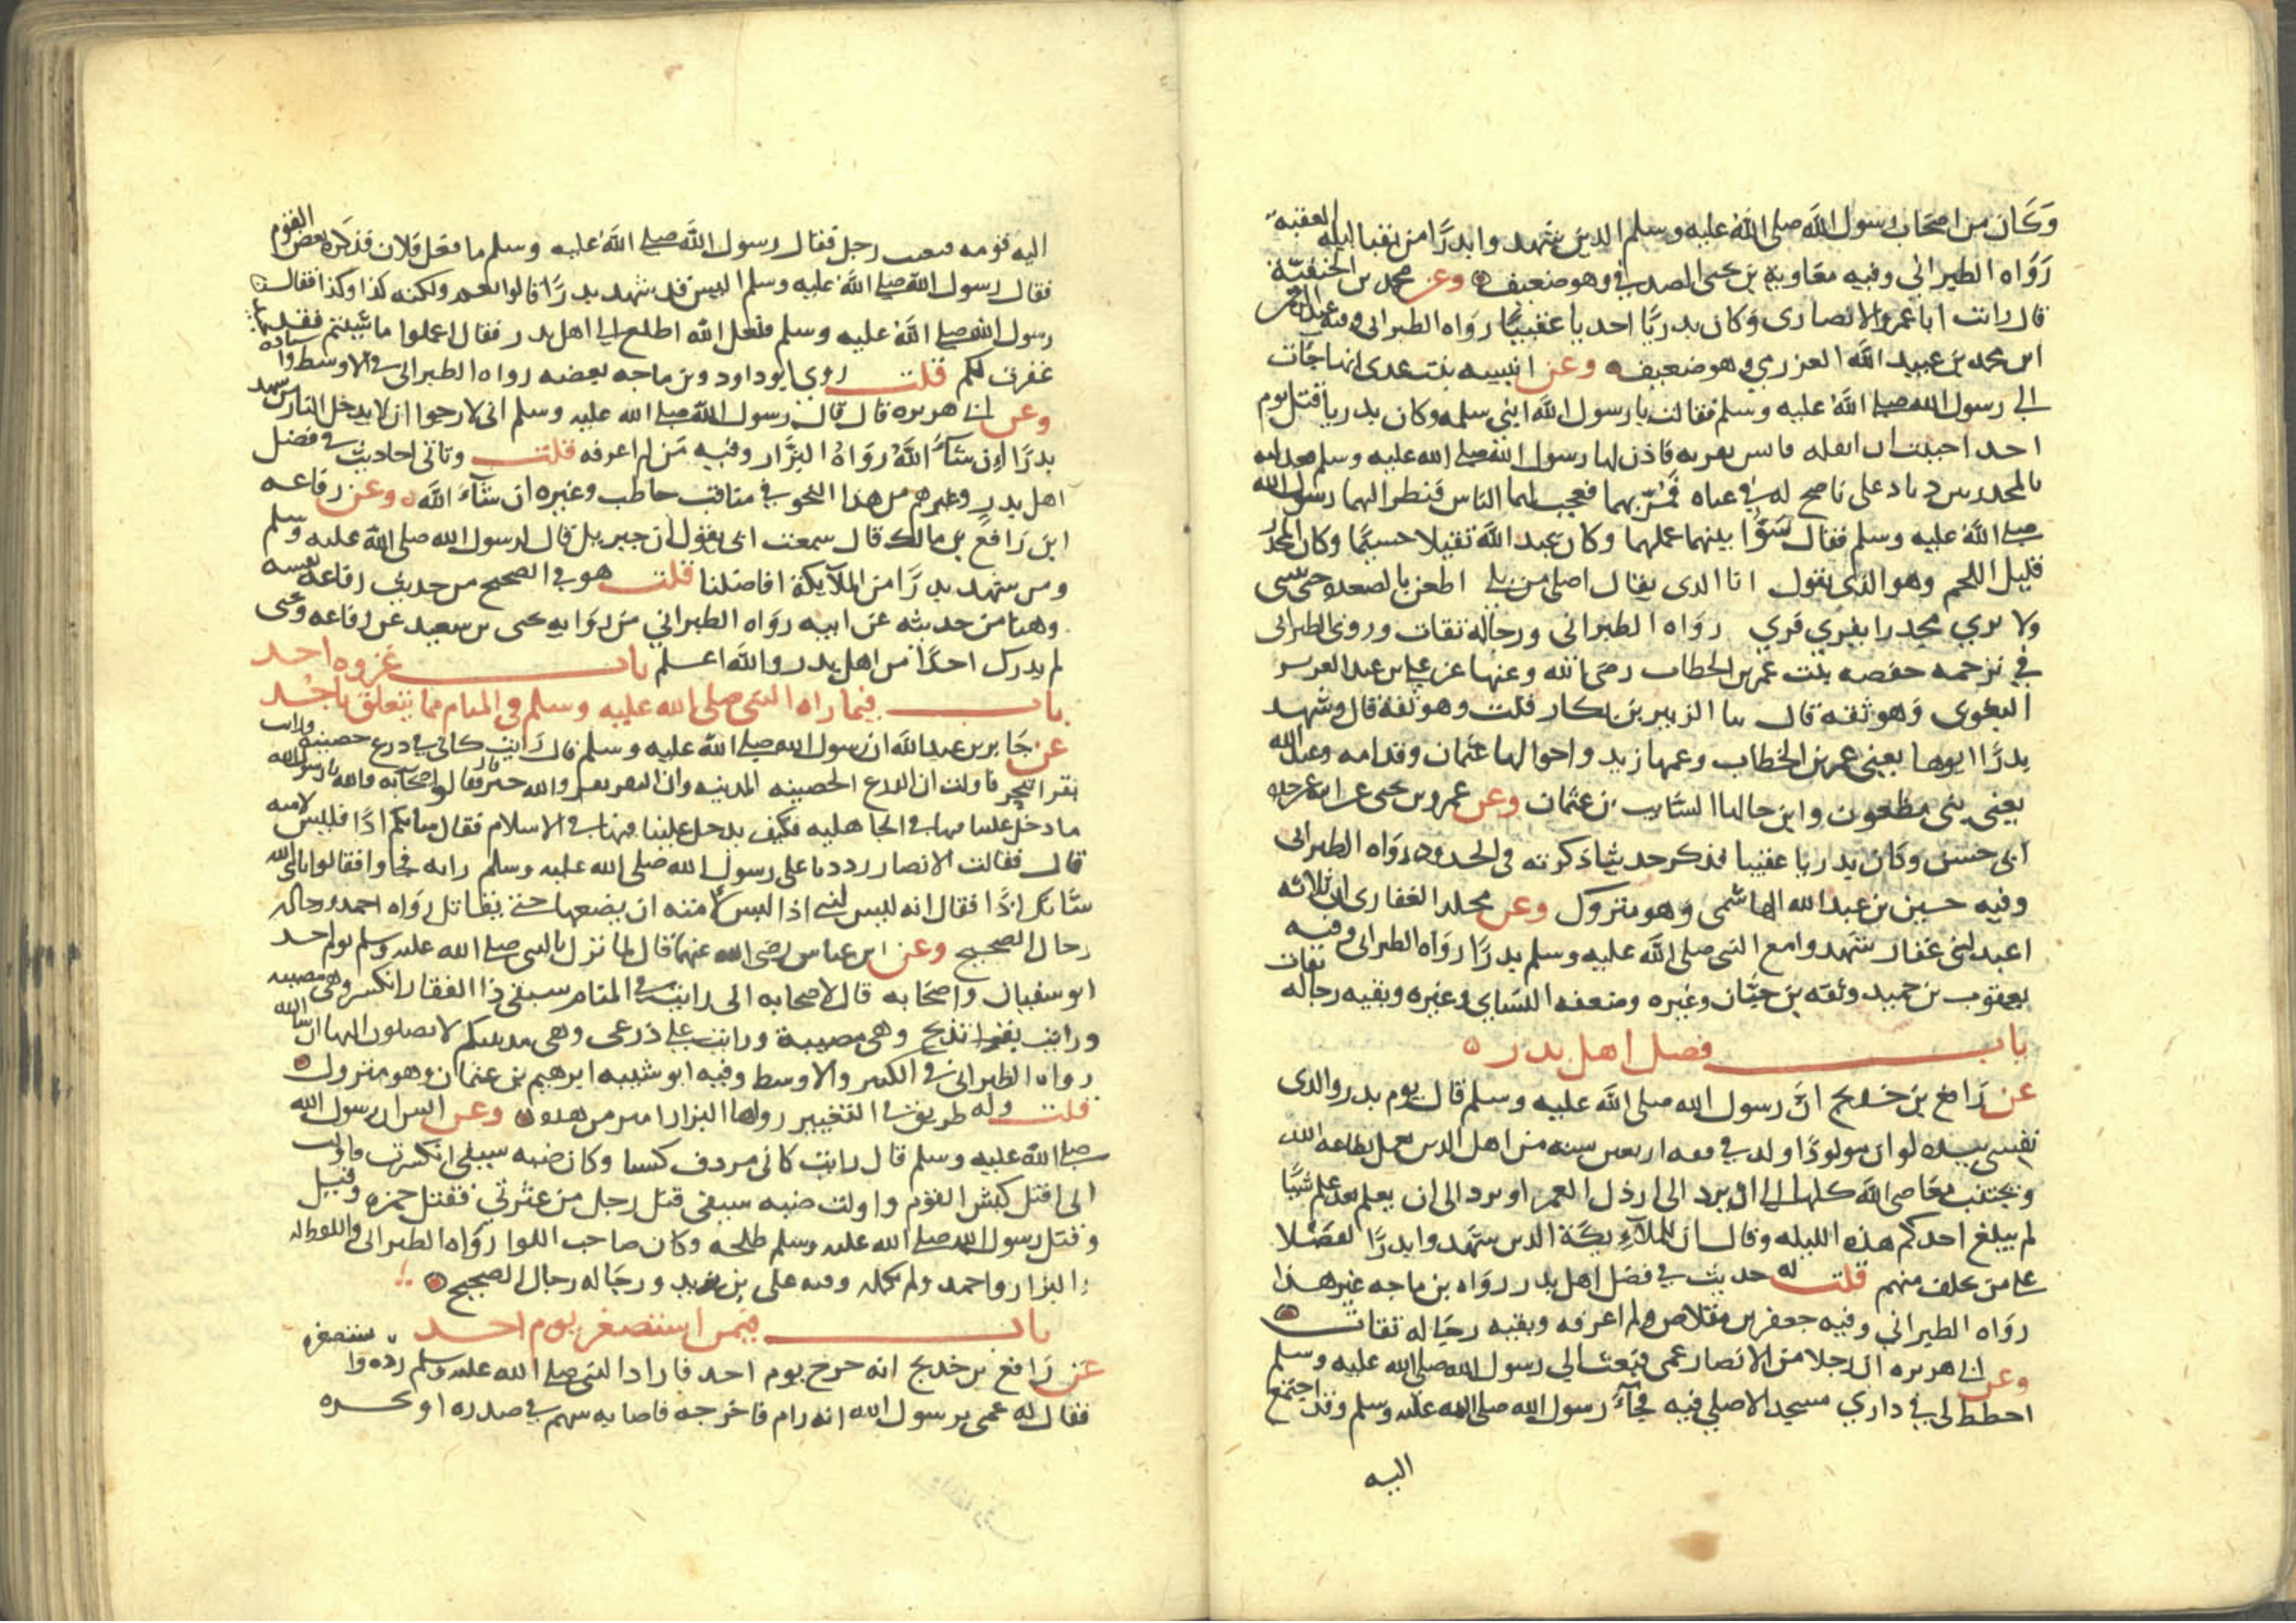 وكان من اصحاب رسول الله صلى الله عليه وسلم الذين شهدوا بدرا من نقبا ليله العقبة
رواه الطبراني وفيه معاوية بن يحيى الصدفي وهو ضعيف وعن محمد بن الحنفية
قال رايت ابا عمرو الانصاري وكان بدريا احديا عقبيا رواه الطبراني وفيه عبد الرحمن
ابن محمد بن عبيد الله العزري وهو ضعيف وعن انيسه بنت عدي انها جات
الى رسول الله صلى الله عليه وسلم فقالت يا رسول الله ابني سلمه وكان بدريا قتل يوم
احد احببت ان انقله فانس بقربه فاذن لها رسول الله صلى الله عليه وسلم
بالمجدر بن دياد على ناضح له في عباه فمر بهما فعجب لهما الناس فنظر اليهما رسول الله
صلى الله عليه وسلم فقال سوا بينهما عملهما وكان عبد الله ثقيلا جسيما وكان المجدر
قليل اللحم وهو الذي يقول انا الذي يقال اصلي من بلي اطعن بالصعده حتى تنثني
ولا يري مجدرا يفري فري رواه الطبراني ورجاله ثقات وروى الطبراني
في ترجمه حفصه بنت عمر بن الخطاب رضى الله عنها عن علي بن عبد العزيز
البغوي وهو ثقه قال ثنا الزبير بن بكار قلت وهو ثقه قال وشهد
بدرا ابوها يعني عمر بن الخطاب وعمها زيد واخوالها عثمان وقدامه وعبد الله
يعني بني مظعون وابن خالها السايب بن عثمان وعن عمرو بن يحيى عن ابيه عن جده
ابي حسن وكان بدريا عقبيا فذكر حديثا ذكرته في الحدود رواه الطبراني
وفيه حسين بن عبد الله الهاشمي وهو متروك وعن مخلد الغفاري ان ثلاثه
اعبد لبني غفار شهدوا مع النبي صلى الله عليه وسلم بدرا رواه الطبراني وفيه
يعقوب بن حميد وثقه بن حبان وغيره وضعفه النساي وغيره وبقيه رجاله ثقات
باب فضل اهل بدر
عن رافع بن خديج ان رسول الله صلى الله عليه وسلم قال يوم بدر والذي
نفسي بيده لو ان مولودا ولد في فقه اربعين سنه من اهل الدين يعمل بطاعه الله
ويجتنب معاصي الله كلها الى ان يرد الى ارذل العمر او يرد الى ان يعلم بعد علم شيا
لم يبلغ احدكم هذه الليله وقال ان للملايكة الذين شهدوا بدرا لفضلا
على من تخلف منهم قلت له حديث في فضل اهل بدر رواه بن ماجه غير هذا
رواه الطبراني وفيه جعفر بن مقلاص ولم اعرفه وبقيه رجاله ثقات
وعن ابي هريره ان رجلا من الانصار عمي فبعث الى رسول الله صلى الله عليه وسلم
اخطط لي في داري مسجدا لاصلي فيه فجاء رسول الله صلى الله عليه وسلم وقد اجتمع
اليه
اليه قومه فتغيب رجل فقال رسول الله صلى الله عليه وسلم ما فعل فلان فذكره بعض القوم
فقال رسول الله صلى الله عليه وسلم اليس قد شهد بدرا قالوا نعم ولكنه كذا وكذا فقال
رسول الله صلى الله عليه وسلم فلعل الله اطلع الى اهل بدر فقال اعملوا ما شيتم فقد
غفرت لكم قلت روى ابو داود وبن ماجه بعضه رواه الطبراني في الاوسط
وعن ابي هريره قال قال رسول الله صلى الله عليه وسلم اني لارجوا ان لا يدخل النار من شهد
بدرا ان شاء الله رواه البزار وفيه من لم اعرفه قلت وتاتي احاديث في فضل
اهل بدر وغيرهم من هذا النحو في مناقب حاطب وغيره ان شاء الله وعن رفاعه
ابن رافع بن مالك قال سمعت ابي يقول ان جبريل قال لرسول الله صلى الله عليه وسلم
ومن شهد بدرا من الملايكة افاضلنا قلت هو في الصحيح من حديث رفاعه نفسه
وهنا من حديثه عن ابيه رواه الطبراني من روايه يحيى بن سعيد عن رفاعه ويحيى
لم يدرك احدا من اهل بدر والله اعلم باب غزوه احد
باب فيما راه النبي صلى الله عليه وسلم في المنام مما يتعلق باحد
عن جابر بن عبد الله ان رسول الله صلى الله عليه وسلم قال رايت كاني في درع حصينه ورايت
بقرا تنحر فاولت ان الدرع الحصينه المدينه وان البقر بقر والله خير فقال لاصحابه والله يا رسول الله
ما دخل علينا فيها في الجاهليه فكيف يدخل علينا فيها في الاسلام فقال شانكم اذا فلبس لامته
قال فقالت الانصار رددنا على رسول الله صلى الله عليه وسلم رايه فجاوا فقالوا يا نبي الله
شانك اذا فقال انه ليس لنبي اذا لبس لامته ان يضعها حتى يقاتل رواه احمد ورجاله
رجال الصحيح وعن ابن عباس رضى الله عنهما قال لما نزل بالنبي صلى الله عليه وسلم يوم احد
ابو سفيان واصحابه قال لاصحابه اني رايت في المنام سيفي ذا الفقار انكسر وهي مصيبه
ورايت بقرا تذبح وهي مصيبة ورايت علي درعي وهي مدينتكم لا يصلون اليها ان شا الله
رواه الطبراني في الكبير والاوسط وفيه ابو شيبه ابرهيم بن عثمان وهو متروك
قلت وله طريق في التعبير رواها البزار وعن انس ان رسول الله
صلى الله عليه وسلم قال رايت كاني مردف كبشا وكان ضبه سيفي انكسرت فاولت
اني اقتل كبش القوم واولت ضبه سيفي قتل رجل من عترتي فقتل حمزه وقتل
وقتل رسول الله صلى الله عليه وسلم طلحه وكان صاحب اللوا رواه الطبراني واللفظ له
والبزار واحمد ولم يكمله وفيه علي بن زيد ورجاله رجال الصحيح
باب فيمن استصغر يوم احد
عن رافع بن خديج انه خرج يوم احد فاراد النبي صلى الله عليه وسلم رده واستصغره
فقال له عمي يرسول الله انه رام فاخرجه فاصابه سهم في صدره او نحره